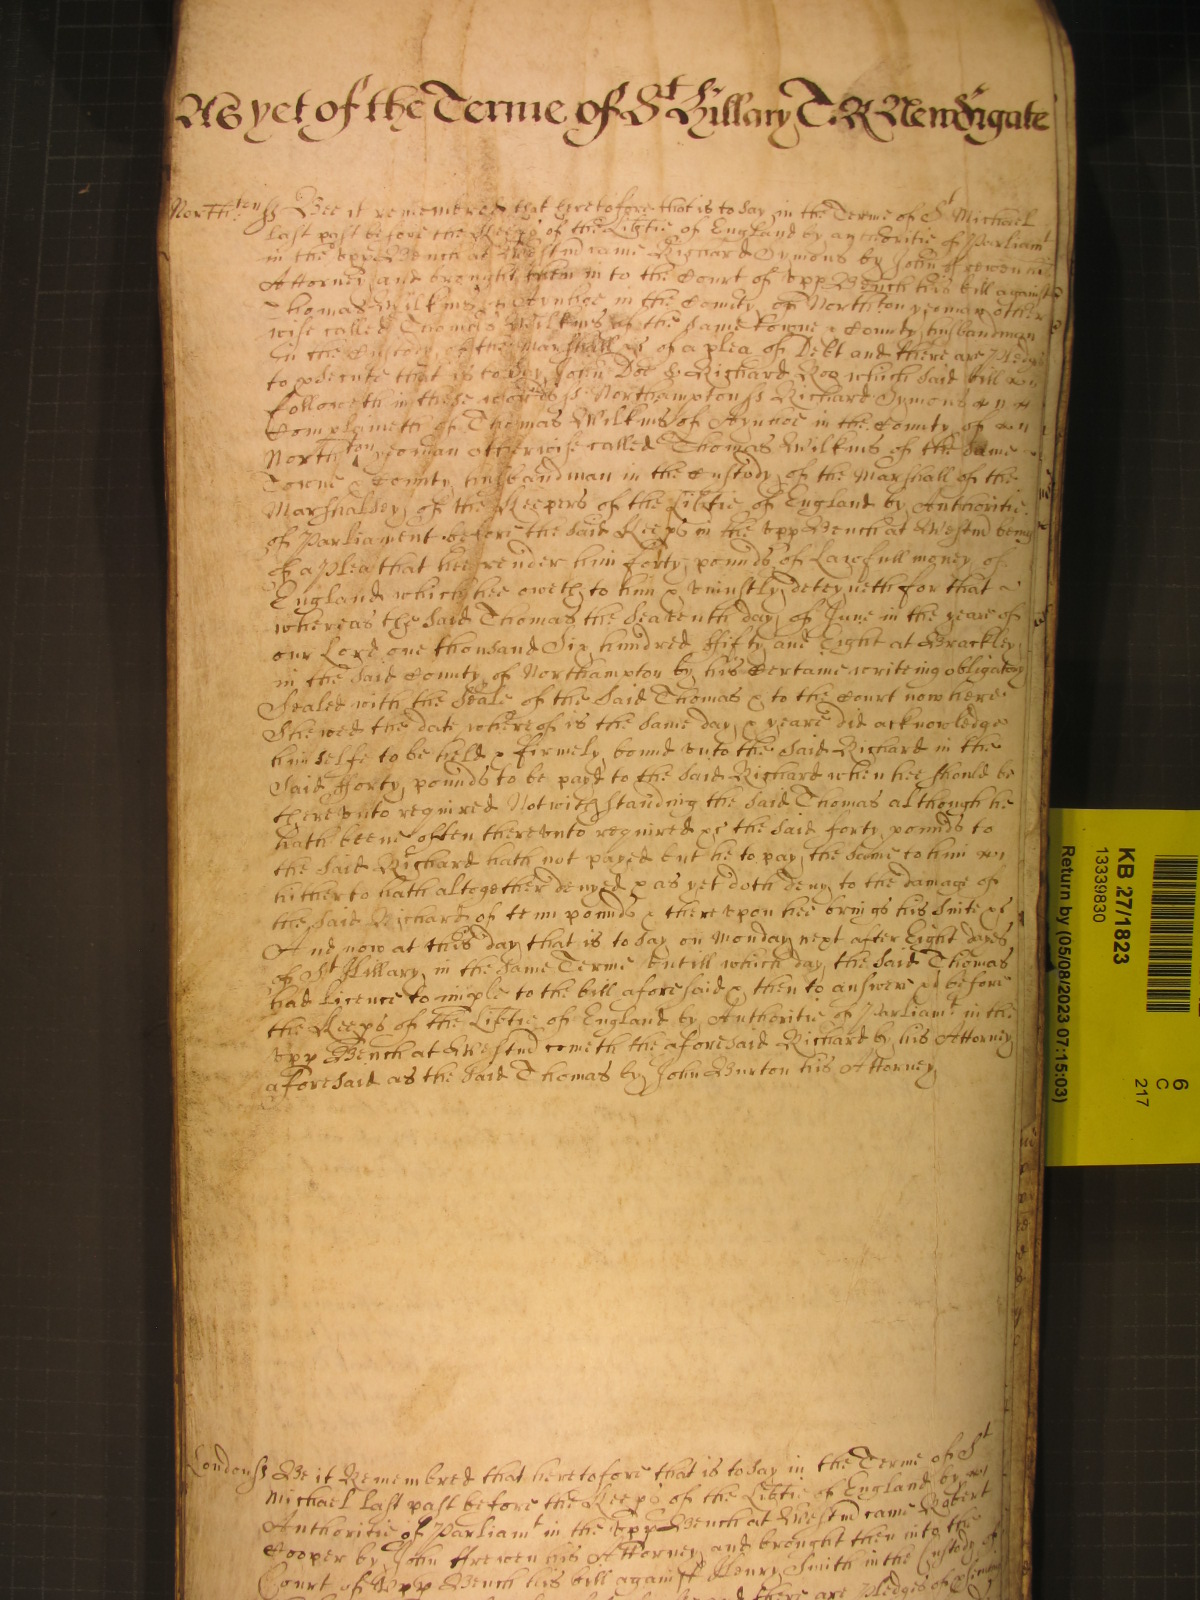 As yet of the Terme of St Hillary T: R Newdigate
Northton ss Bee it remembred that heretofore that is to say in the Terme of St Michael
last past before the Keeps of the Libtie of England by authoritie of Parliamt
in the upp Bench at Westmr came Richard Symons by John ffrewen his
Attorney and brought then in to the Court of upp Bench his bill against
Thomas Wilkins of Aynhoe in the County of Northton yeoman other
wise called Thomas Wilkins of the same towne & County husbandman
In the Custody of the Marshall &c of a plea of Debt and there are Pledges
to psecute that is to say John Doe & Richard Roo which said bill
followeth in these words ss Northampton ss Richard Symons
Complaineth of Thomas Wilkins of Aynhoe in the County of
Northton yeoman otherwise called Thomas Wilkins of the same
Towne & County husbandman in the Custody of the Marshall of the
Marshalsey of the Keepers of the Libtie of England by Authoritie
of Parliament before the said Keeps in the upp Bench at Westmr being
of a Plea that hee render him forty pounds of Lawfull money of
England which hee oweth to him & uniustly deteyneth for that
whereas the said Thomas the Seaventh day of June in the yeare of
our Lord one thousand Six hundred ffifty and Eight at Brackley
in the said County of Northampton by his Certaine writeing obligatory
Sealed with the Seale of the said Thomas & to the Court now here
Shewed the date whereof is the same day & yeare did acknowledge
himselfe to be held & firmely bound unto the said Richard in the
said fforty pounds to be payd to the said Richard when hee should be
thereunto required Notwithstanding the said Thomas although he
hath beene often thereunto required &c the said forty pounds to
the said Richard hath not payed but he to pay the same to him
hitherto hath altogether denyed & as yet doth deny to the damage of
the said Richard of tenn pounds & thereupon hee brings his Suite &c
And now at this day that is to say on Monday next after Eight dayes
of St Hillary in the same Terme untill which day the said Thomas
had licence to imple to the bill aforesaid & then to answere &c before
the Keeps of the Libtie of England by Authoritie of Parliamt in the
upp Bench at Westmr cometh the aforesaid Richard by his Attorney
aforesaid as the said Thomas by John Burton his Attorney
London ss Be it Remembred that heretofore that is to say in the Terme of St
Michael last past before the Keeps of the Libtie of England by
Authoritie of Parliamt in the upp Bench at Westmr came Robert
Cooper by John ffrewen his Attorney and brought then into the
Court of upp Bench his bill against Henry Smith in the Custody of
there are Pledges of
KB 27/1823
13339830
Return by (05/08/2023 07:15:03)
6
C
217